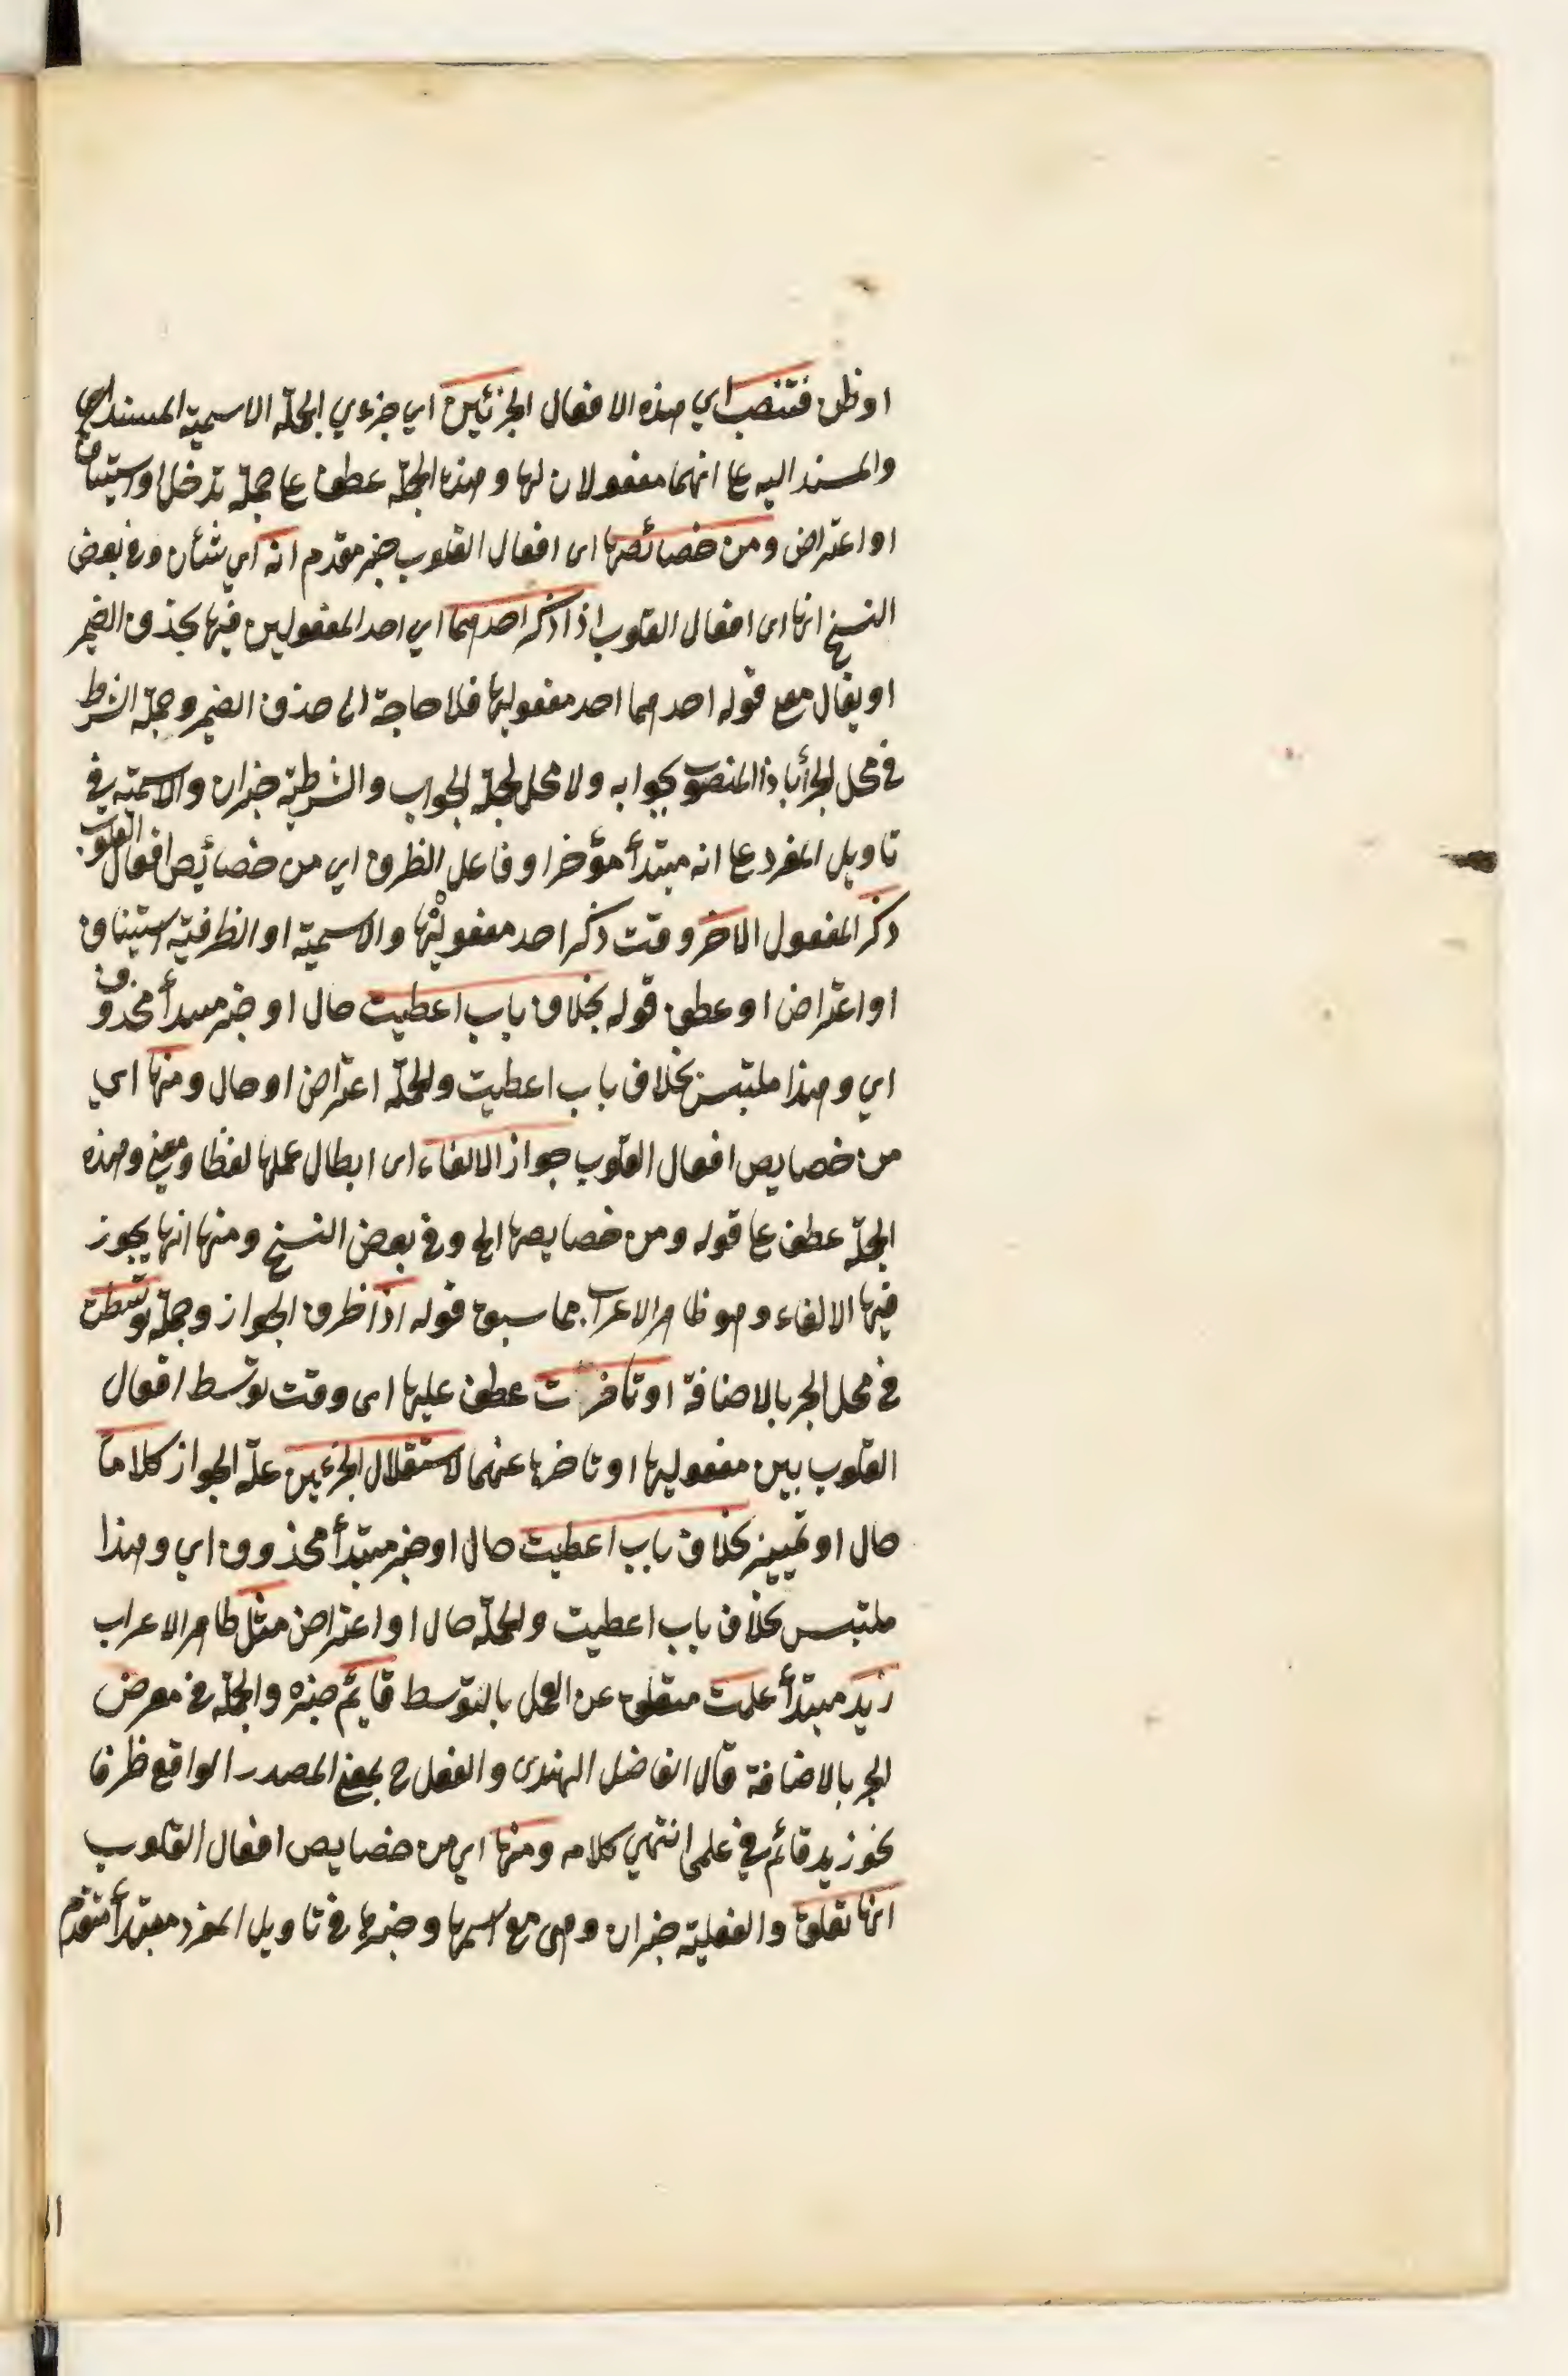 او ظن فتنصب اي هذه الافعال الجزئين اي جزءي الجملة الاسمية المسند
والمسند اليه عا انهما مفعولان لها وهذه الجملة عطف عا جملة تدخل او استيناف
او اعتراض ومن خصائصها اى افعال القلوب خبر مقدم انه اي شأن وفى بعض
النسخ انها اى افعال القلوب اذا ذكر احدهما اي احد المفعولين فيها بحذف الضمير
او يقال مع قوله احدهما احد مفعوليها فلا حاجة الى حذف الضمير وجملة الشرط
فى محل الجر أباذا المنصوب بجوابه ولا محل لجملة الجواب والشرطية خبر ان والاسمية فى
تاويل المفرد عا انه مبتدأ مؤخر او فاعل الظرف اي من خصائيص افعال القلوب
ذكر المفعول الاخر وقت ذكر احد مفعوليها والاسمية او الظرفية استيناف
او اعتراض او عطف قوله بخلاف باب اعطيت حال او خبر مبتدأ محذوف
اي وهذا ملتبس بخلاف باب اعطيت والجملة اعتراض او حال ومنها اي
من خصايص افعال القلوب جواز الالغاء اى ابطال عملها لفظا ومعنى وهذه
الجملة عطف عا قوله ومن خصايصها الخ وفى بعض النسخ ومنها انها يجوز
فيها الالغاء وهو ظاهر الاعراب مما سبق قوله اذا ظرف الجواز وجملة توسطت
فى محل الجر بالاضافة او تاخرت عطف عليها اى وقت توسط افعال
القلوب بين مفعوليها او تاخرها عنهما لاستقلال الجزءين علة الجواز كلاما
حال او تمييز بخلاف باب اعطيت حال او خبر مبتدأ محذوف اي وهذا
ملتبس بخلاف باب اعطيت والجملة حال او اعتراض مثل ظاهر الاعراب
زيد مبتدأ علمت متعلق عن العمل بالتوسط قايم خبره والجملة فى معرض
الجر بالاضافة قال الفاضل الهندى والفعل ح بمعنى المصدر الواقع ظرفا
نحو زيد قائم فى علمى انتهي كلامه ومنها اي من خصايص افعال القلوب
انها تعلق والفعلية خبر ان وهى مع اسمها وخبرها فى تاويل المفرد مبتدأ متقدم